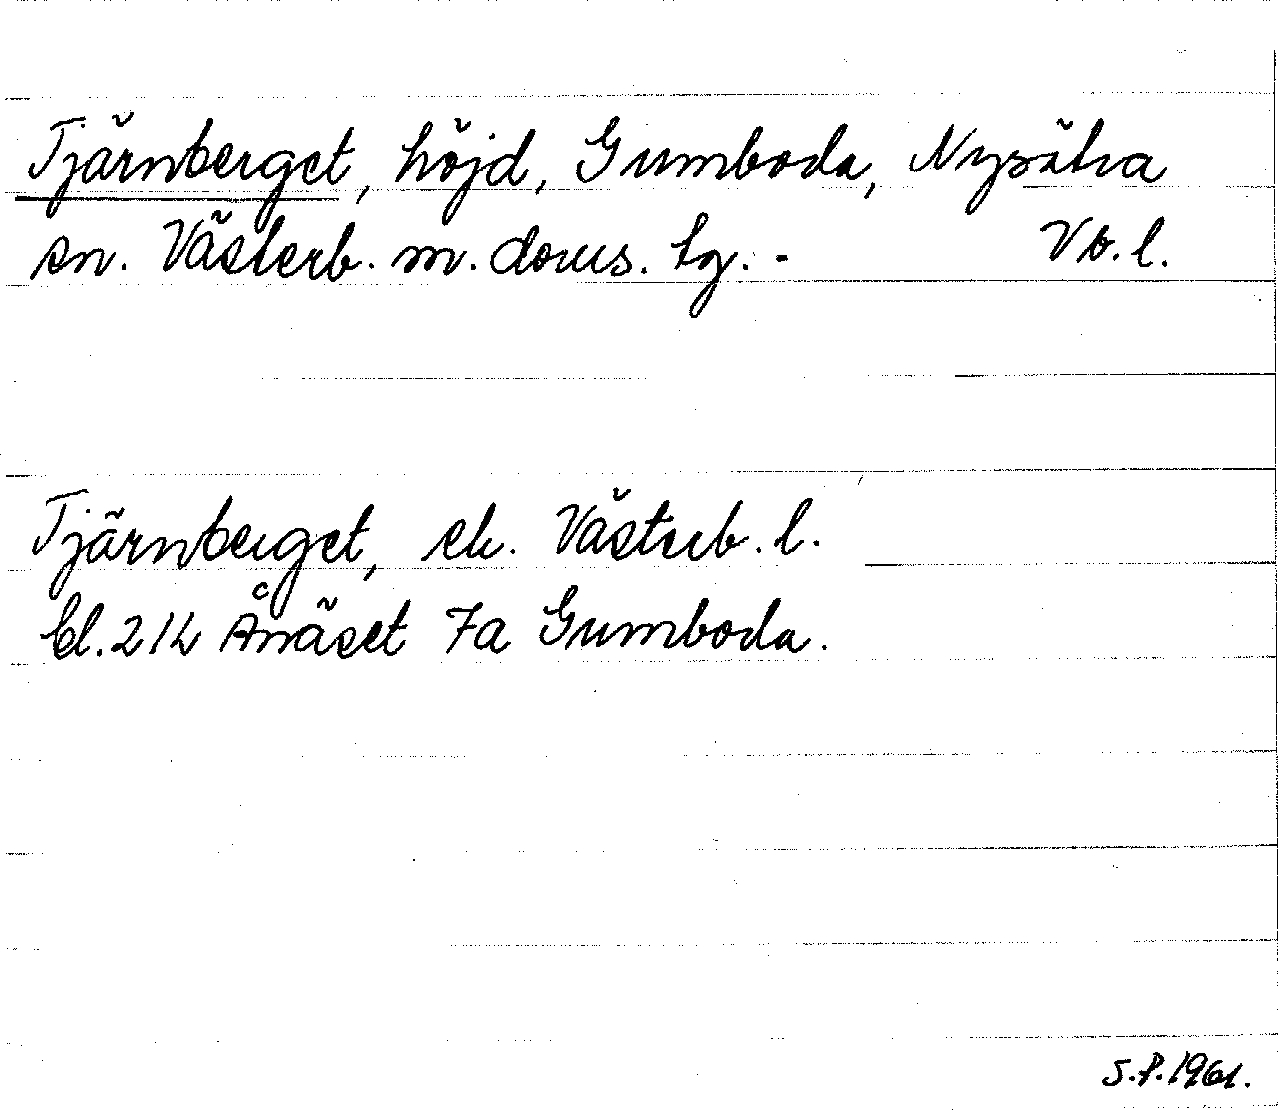 Tjärnberget, höjd, Gumboda, Nysätra
sn. Västerb. m. doms. tg. - Vb. l.
Tjärnberget, ek. Västerb. l.
bl. 21k Ånäset 7a Gumboda.
S.P. 1961.